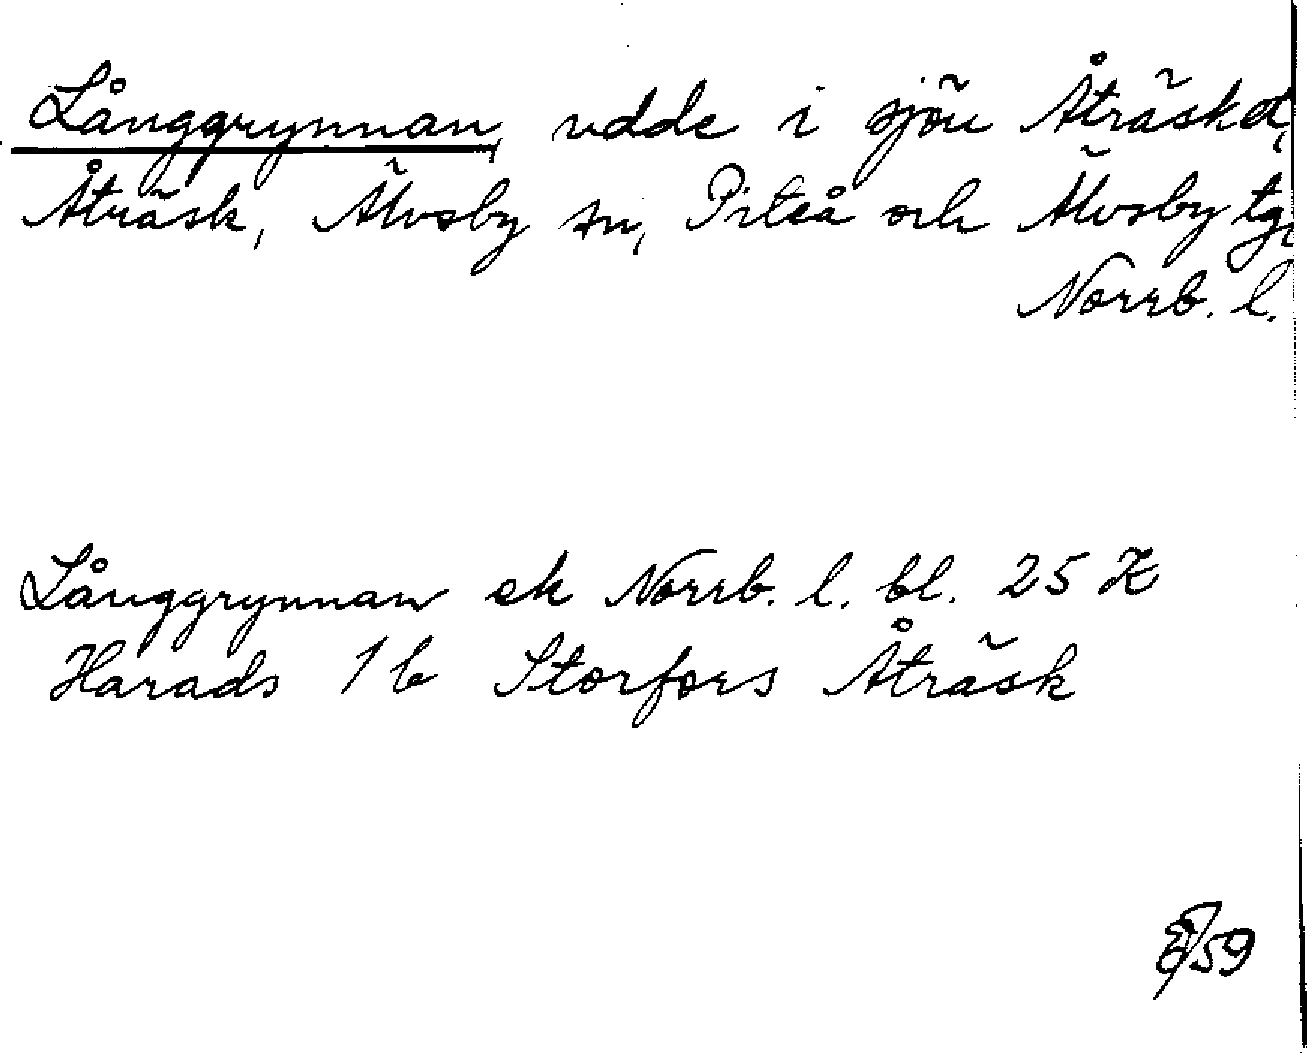 Långgrynnan, udde i sjön Åträsket,
Åträsk, Älvsby sn, Piteå och Älvsby tg,
Norrb. l.
Långgrynnan ek Norrb. l. bl. 25 K
Harads 1 b Storfors Åträsk
59